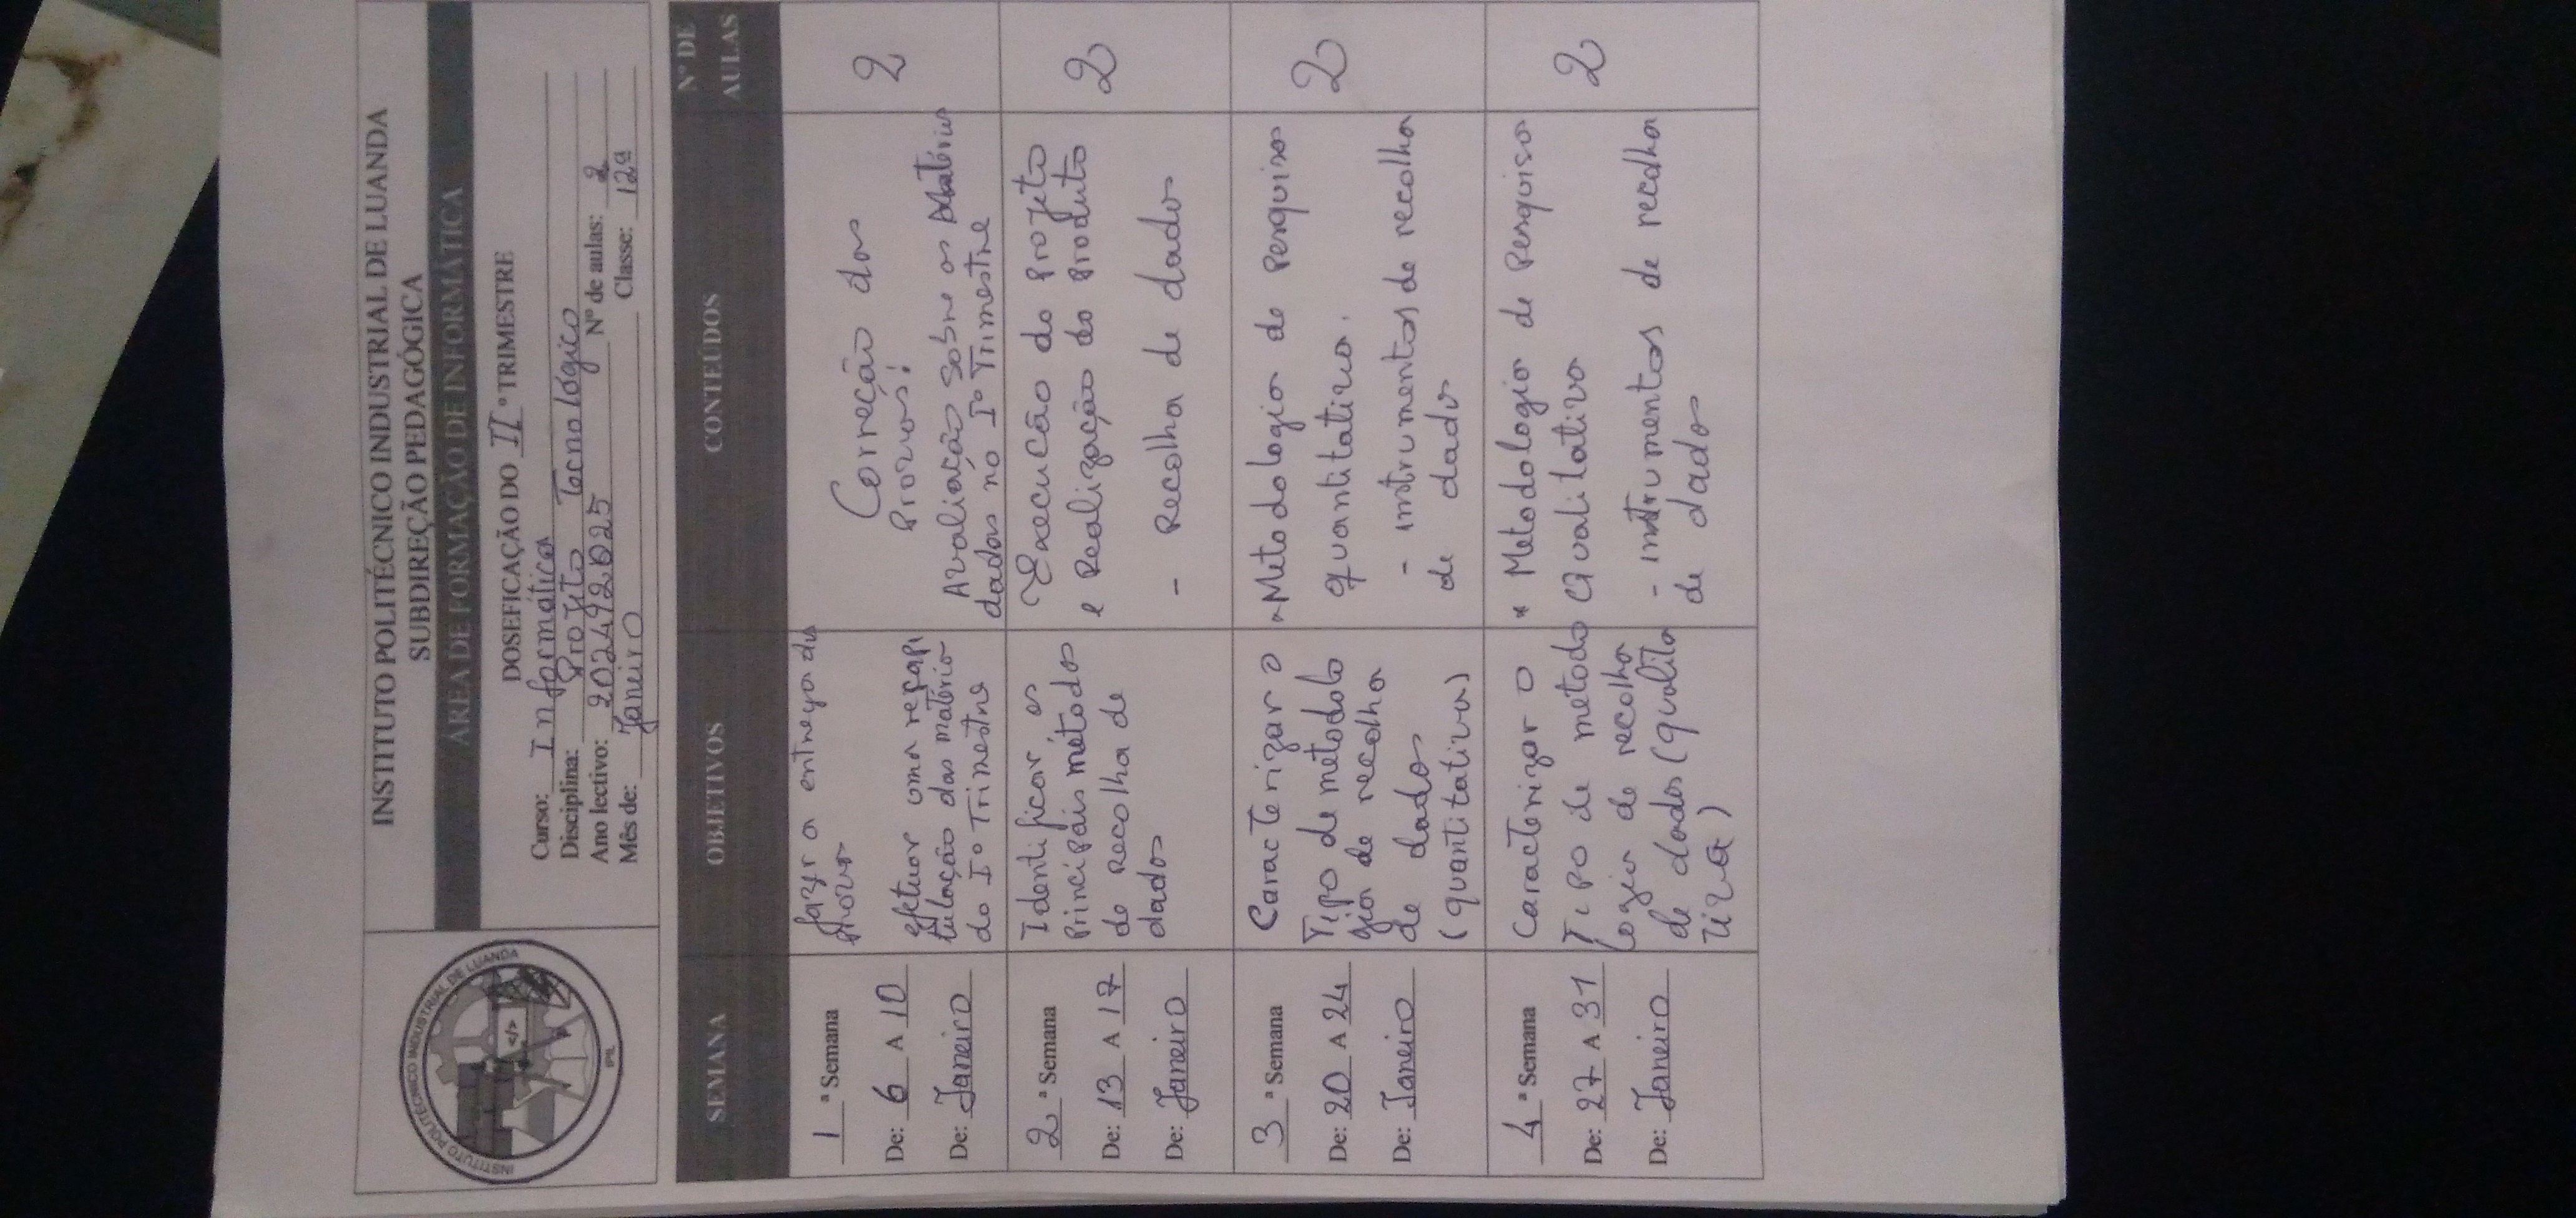 INSTITUTO POLITÉCNICO INDUSTRIAL DE LUANDA
SUBDIREÇÃO PEDAGÓGICA
ÁREA DE FORMAÇÃO DE INFORMÁTICA
INSTITUTO POLITÉCNICO INDUSTRIAL DE LUANDA
</>
IPIL
DOSEFICAÇÃO DO II º TRIMESTRE
Curso: Informática
Disciplina: Projeto Tecnológico
Ano lectivo: 2024/2025 Nº de aulas: 2
Mês de: Janeiro Classe: 12ª
SEMANA OBJETIVOS CONTEÚDOS Nº DE AULAS
1 ª Semana
De: 6 A 10
De: Janeiro
fazer a entrega das
provas
efetuar uma recapi
tulação das matéria
do Iº Trimestre
Correção das
Provas!
Avaliação sobre as Matérias
dadas no Iº Trimestre
2
2 ª Semana
De: 13 A 17
De: Janeiro
Identificar os
principais métodos
de recolha de
dados
Execução do Projeto
e Realização do Produto
- Recolha de dados
2
3 ª Semana
De: 20 A 24
De: Janeiro
Caracterizar o
Tipo de metodolo
gia de recolha
de dados
(quantitativa)
Metodologia de pesquisa
quantitativa.
- instrumentos de recolha
de dados
2
4 ª Semana
De: 27 A 31
De: Janeiro
Caracterizar o
Tipo de metodo
logia de recolha
de dados (qualita
tiva)
* Metodologia de Pesquisa
Qualitativa
- instrumentos de recolha
de dados
2